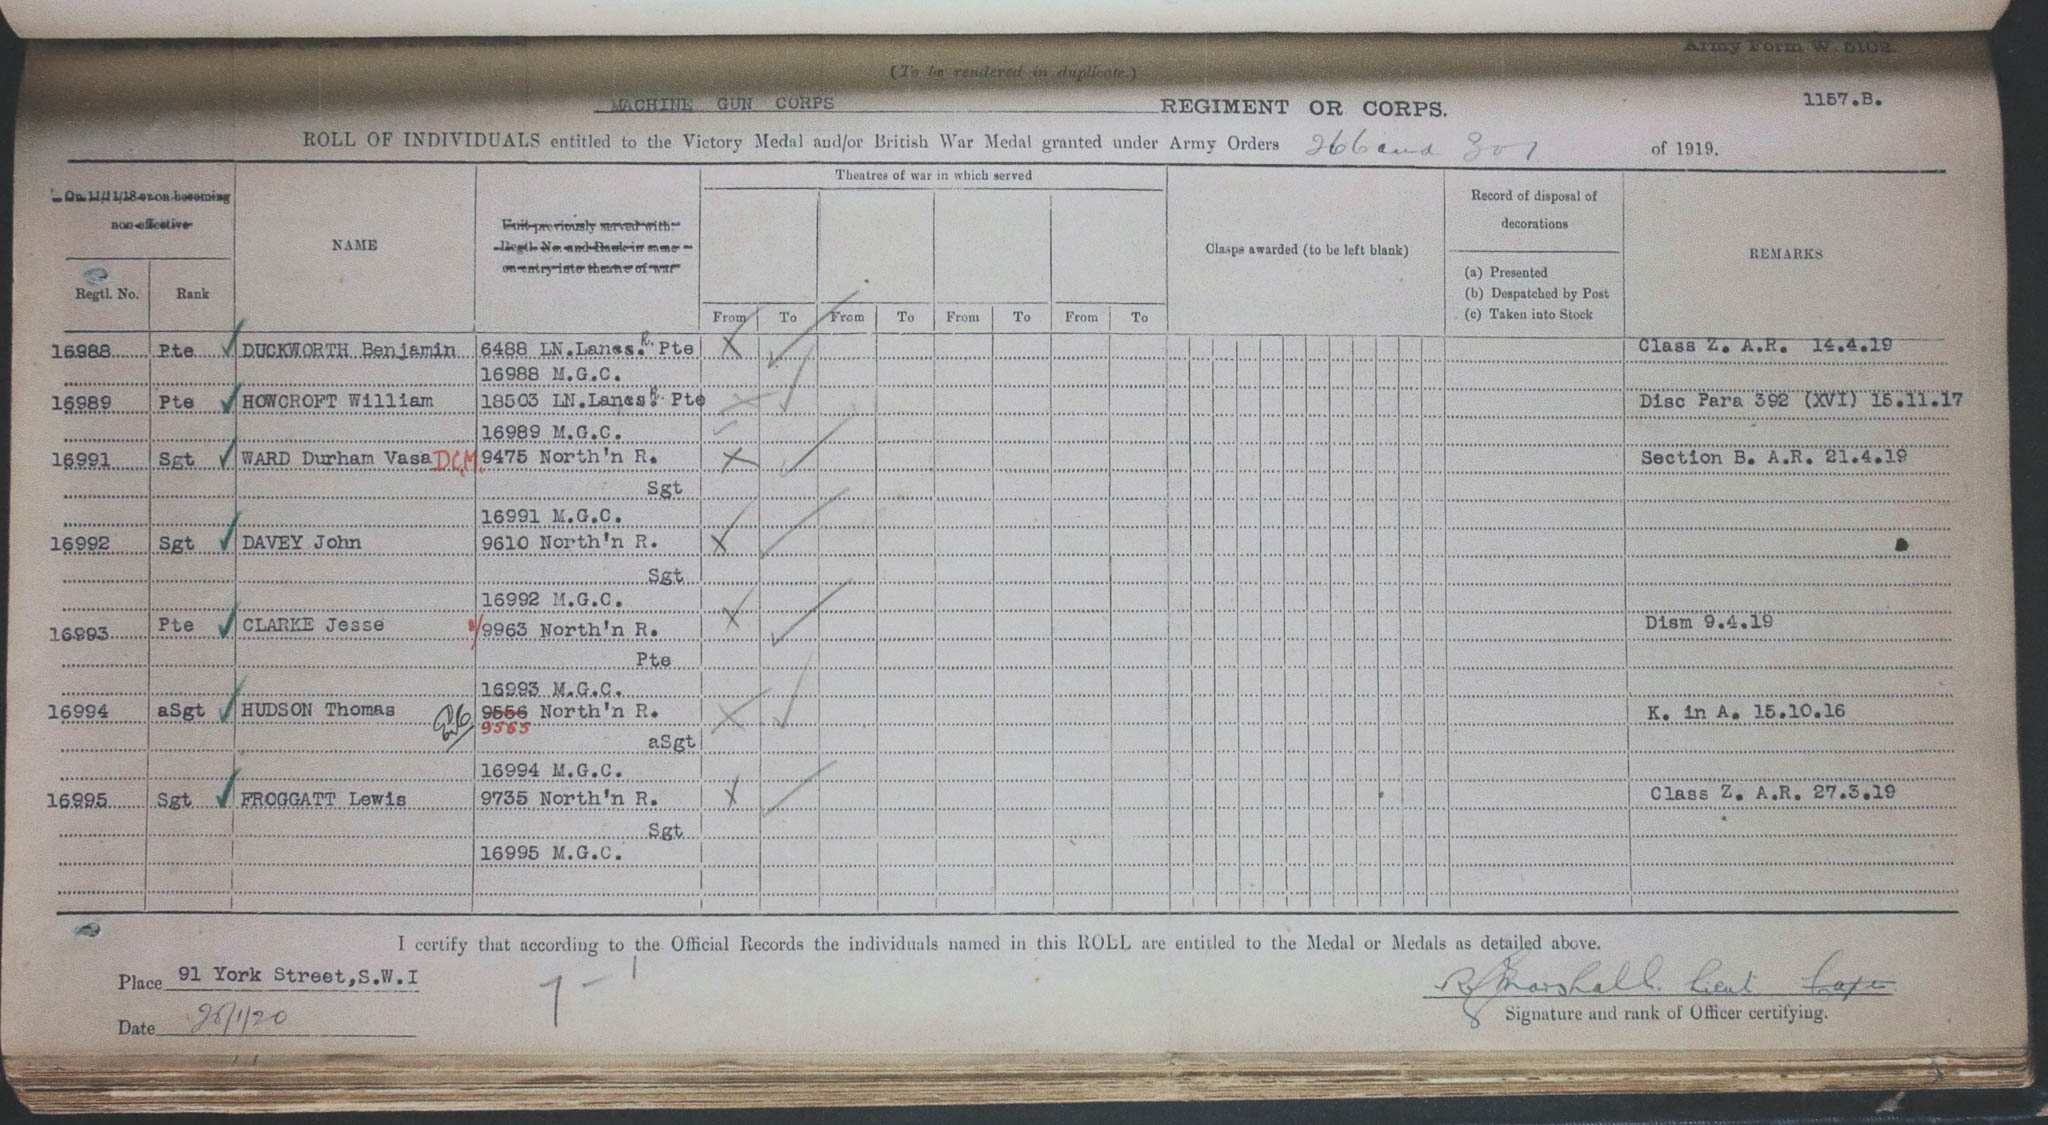 Army Form W. 5102.
(To be rendered in duplicate.)
MACHINE GUN CORPS REGIMENT OR CORPS. 1157.B.
ROLL OF INDIVIDUALS entitled to the Victory Medal and/or British War Medal granted under Army Orders 266 and 301 of 1919.
On 11/11/18 or on becoming non-effective
Regtl. No.
Rank
NAME
Unit previously served with.
Regtl. No. and Rank in same
on entry into theatre of war
Theatres of war in which served
From To From To From To From To
Clasps awarded (to be left blank)
Record of disposal of decorations
(a) Presented
(b) Despatched by Post
(c) Taken into Stock
REMARKS
16988 Pte DUCKWORTH Benjamin 6488 LN.Lancs.R. Pte Class Z. A.R. 14.4.19
16988 M.G.C.
16989 Pte HOWCROFT William 18503 LN.Lancs.R. Pte Disc Para 392 (XVI) 15.11.17
16989 M.G.C.
16991 Sgt WARD Durham Vasa D.C.M. 9475 North'n R. Section B. A.R. 21.4.19
Sgt
16991 M.G.C.
16992 Sgt DAVEY John 9610 North'n R.
Sgt
16992 M.G.C.
16993 Pte CLARKE Jesse 9963 North'n R. Dism 9.4.19
Pte
16993 M.G.C.
16994 aSgt HUDSON Thomas 9556 North'n R. K. in A. 15.10.16
9565
aSgt
16994 M.G.C.
16995 Sgt FROGGATT Lewis 9735 North'n R. Class Z. A.R. 27.3.19
Sgt
16995 M.G.C.
I certify that according to the Official Records the individuals named in this ROLL are entitled to the Medal or Medals as detailed above.
Place 91 York Street,S.W.I
Date 26/1/20
Marshall. Lieut
Signature and rank of Officer certifying.